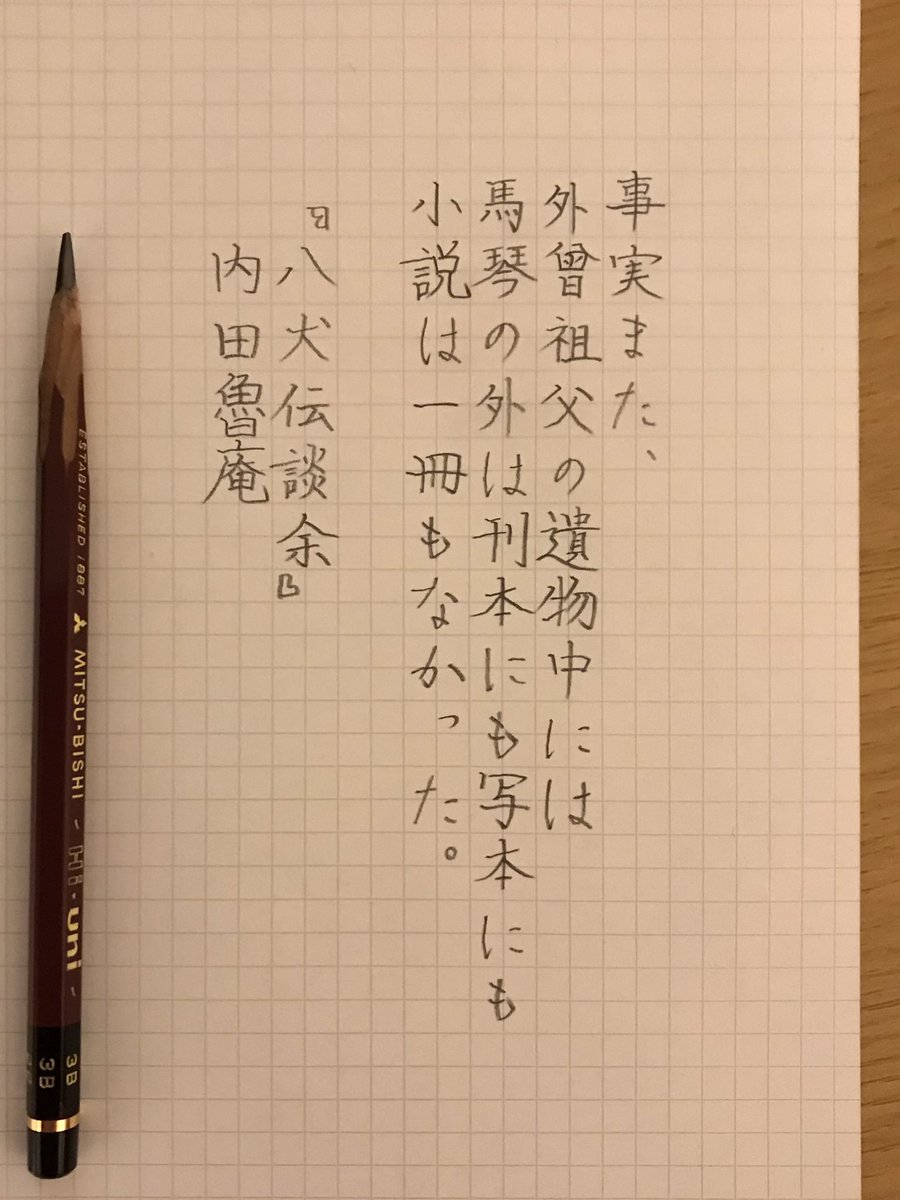 事実また、
外曾祖父の遺物中には
馬琴の外は刊本にも写本にも
小説は一冊もなかった。
『八犬伝談余』
内田魯庵
ESTABLISHED 1887 MITSU-BISHI Hi-uni 3B
3B